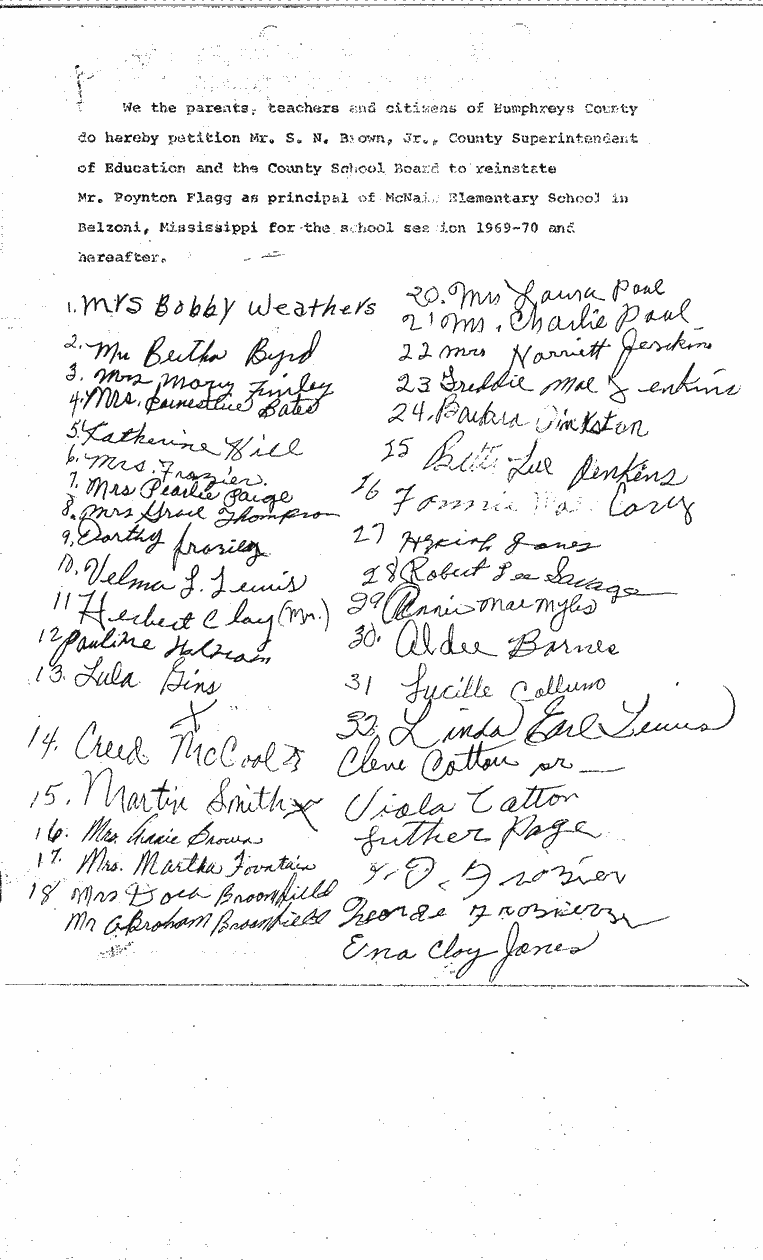 We the parents, teachers and citizens of Humphreys County
do hereby petition Mr. S. N. Brown, Jr., County Superintendent
of Education and the County School Board to reinstate
Mr. Poynton Flagg as principal of McNair Elementary School in
Belzoni, Mississippi for the school session 1969-70 and
hereafter.
1. Mrs Bobby Weathers
2. Mrs Bertha Byrd
3. Mrs Mary Finley
4. Mrs. Earnestine Bates
5. Katherine Hill
6. Mrs. Frazier.
7. Mrs Pearlie Paige
8. Mrs Grace Thompson
9. Dorthy Frazier
10. Velma L. Lewis
11 Herbert Clay (Mr.)
12 Pauline
13. Lula Gins
14. Creed McCool
15. Martin Smith
16. Mrs. Annie Brown
17. Mrs. Martha Fountain
18 Mrs Dora Broomfield
Mr Abroham Broomfield
20. Mrs Laura Paul
21 Mrs. Charlie Paul
22 Mrs Harriett Jenkins
23 Freddie Mae Jenkins
24. Barbra Pinkston
25 Lee Jenkins
26 Fannie Mae Carey
27 Jones
28 Robert Lee Savage
29 Annie Mae Myles
30. Aldee Barnes
31 Lucille Collums
32. Linda Earl Lewis
Cleve Cotton sr
Viola Catton
Luther Page
Frozier
George Frozier
Ena Clay Jones